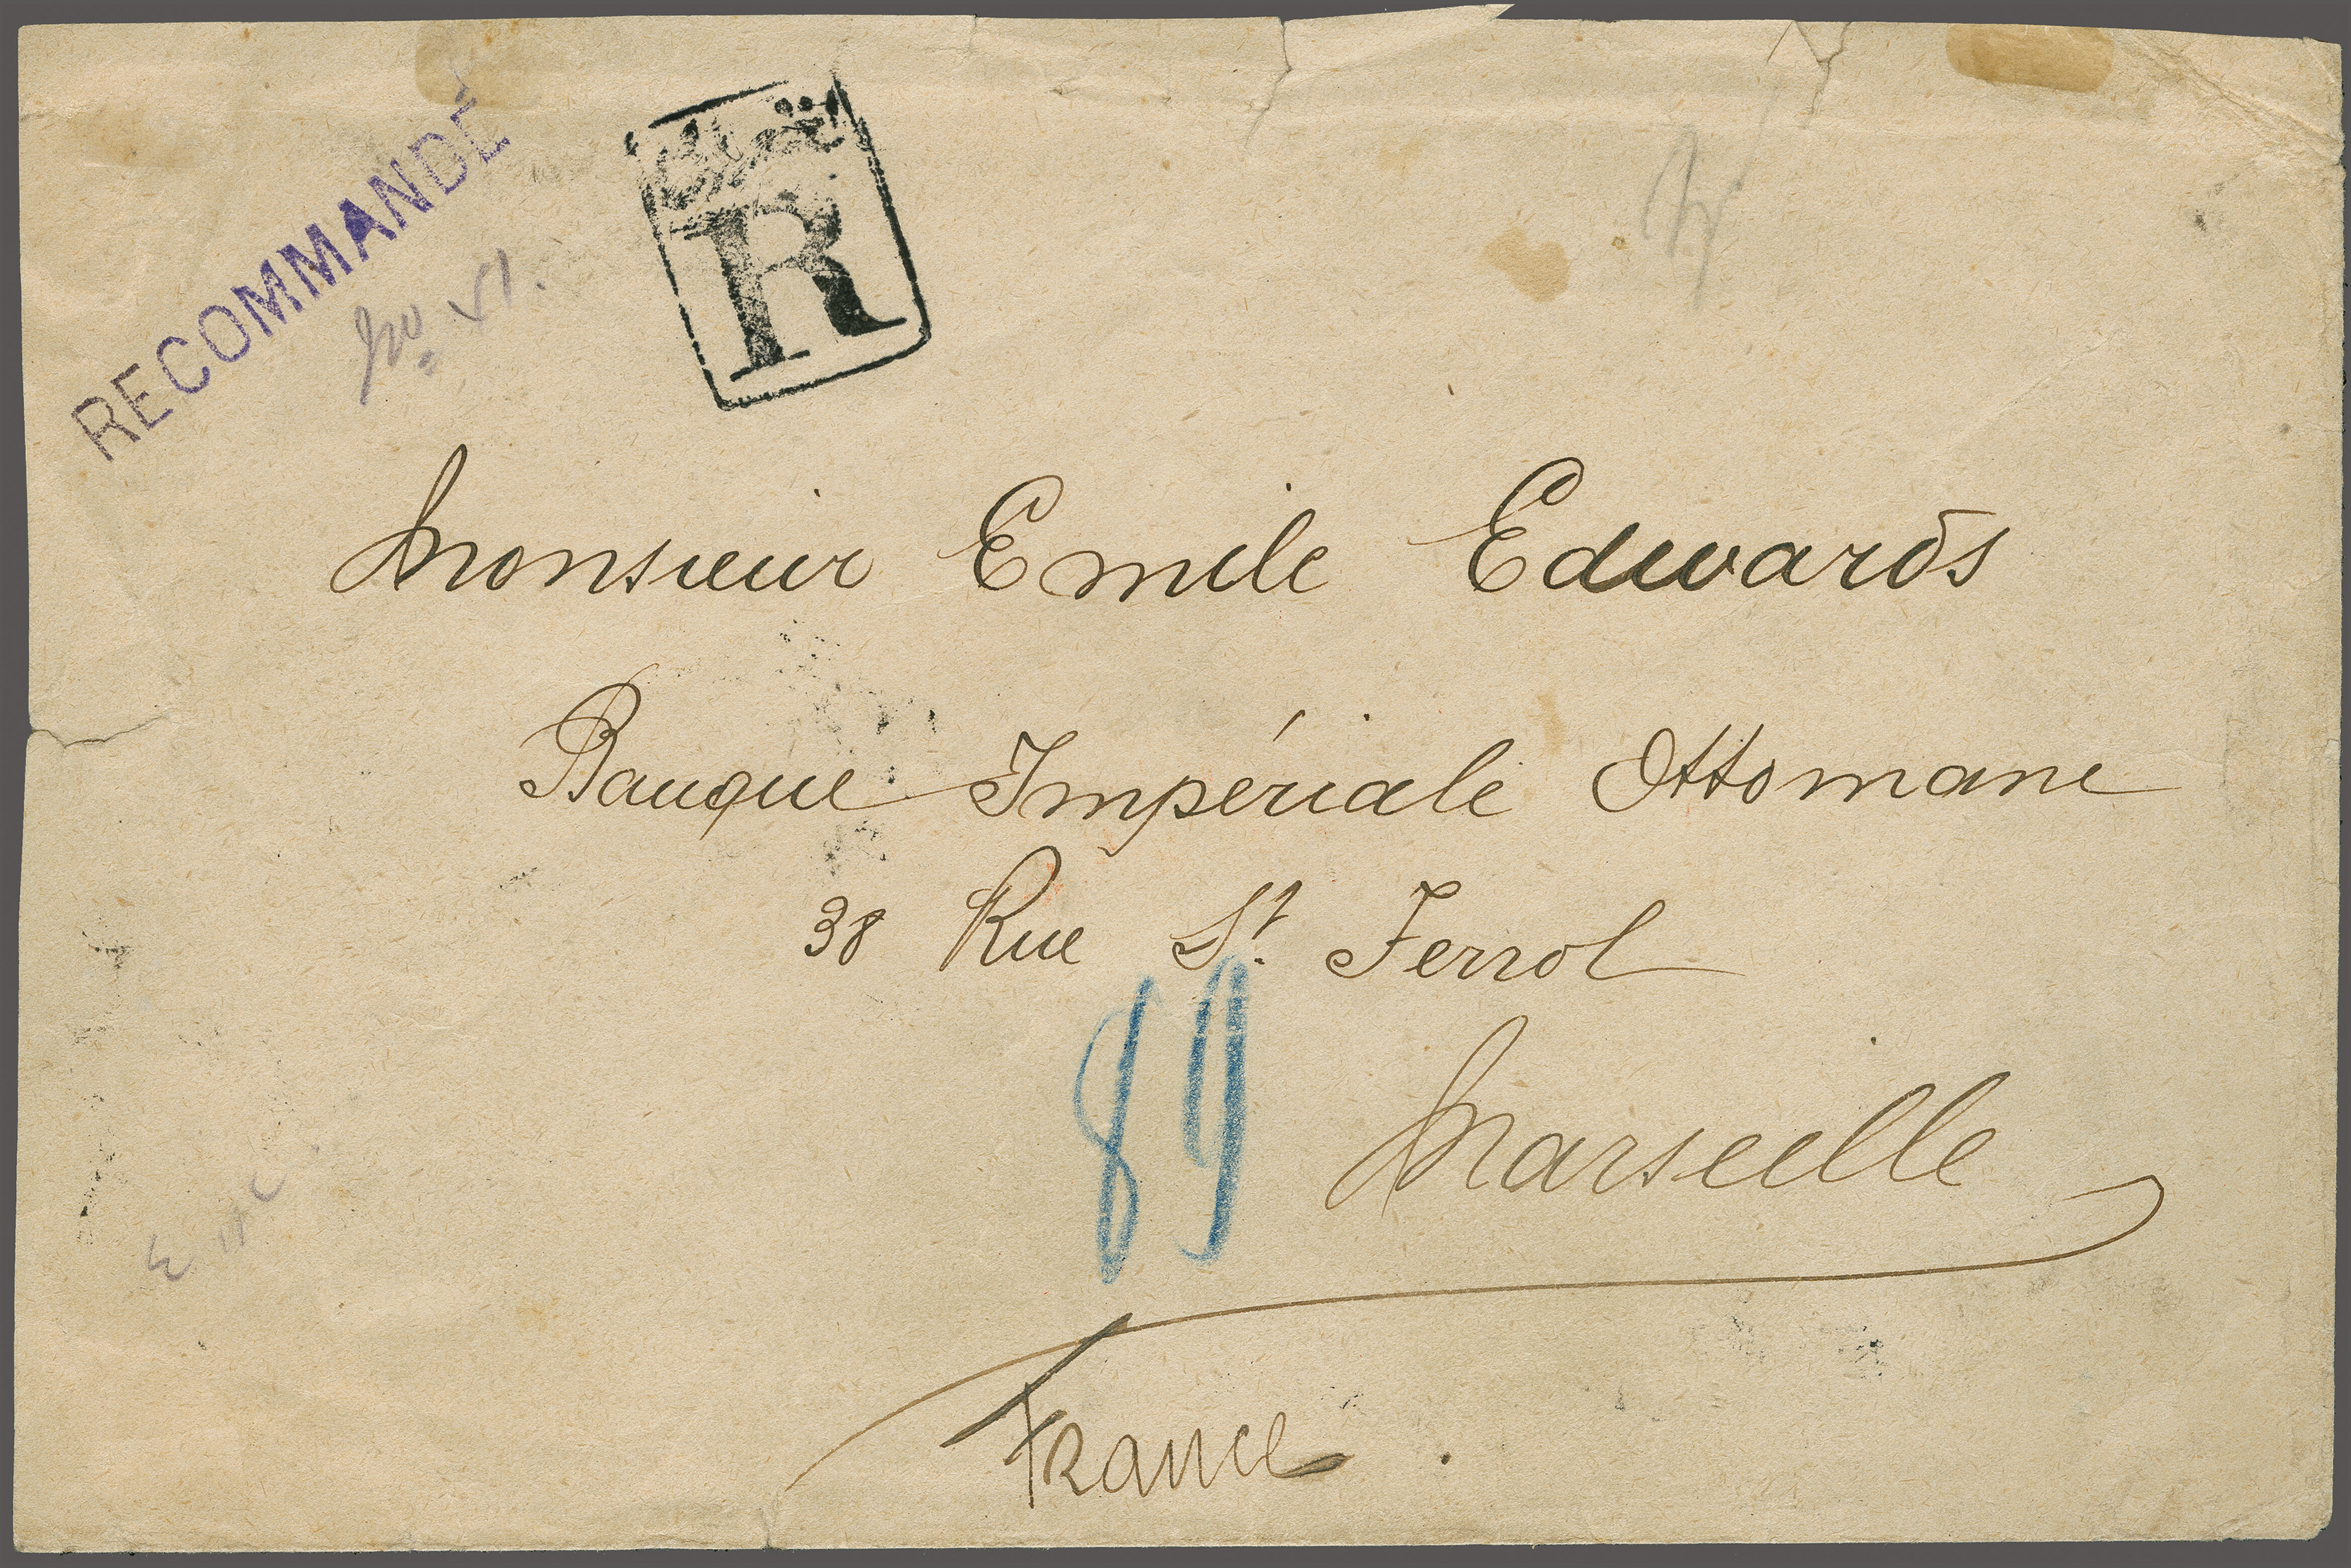 RECOMMANDÉ
R
Monsieur Emile Edwards
Banque Impériale Ottomane
38 Rue St. Ferrol
89
Marseille
France